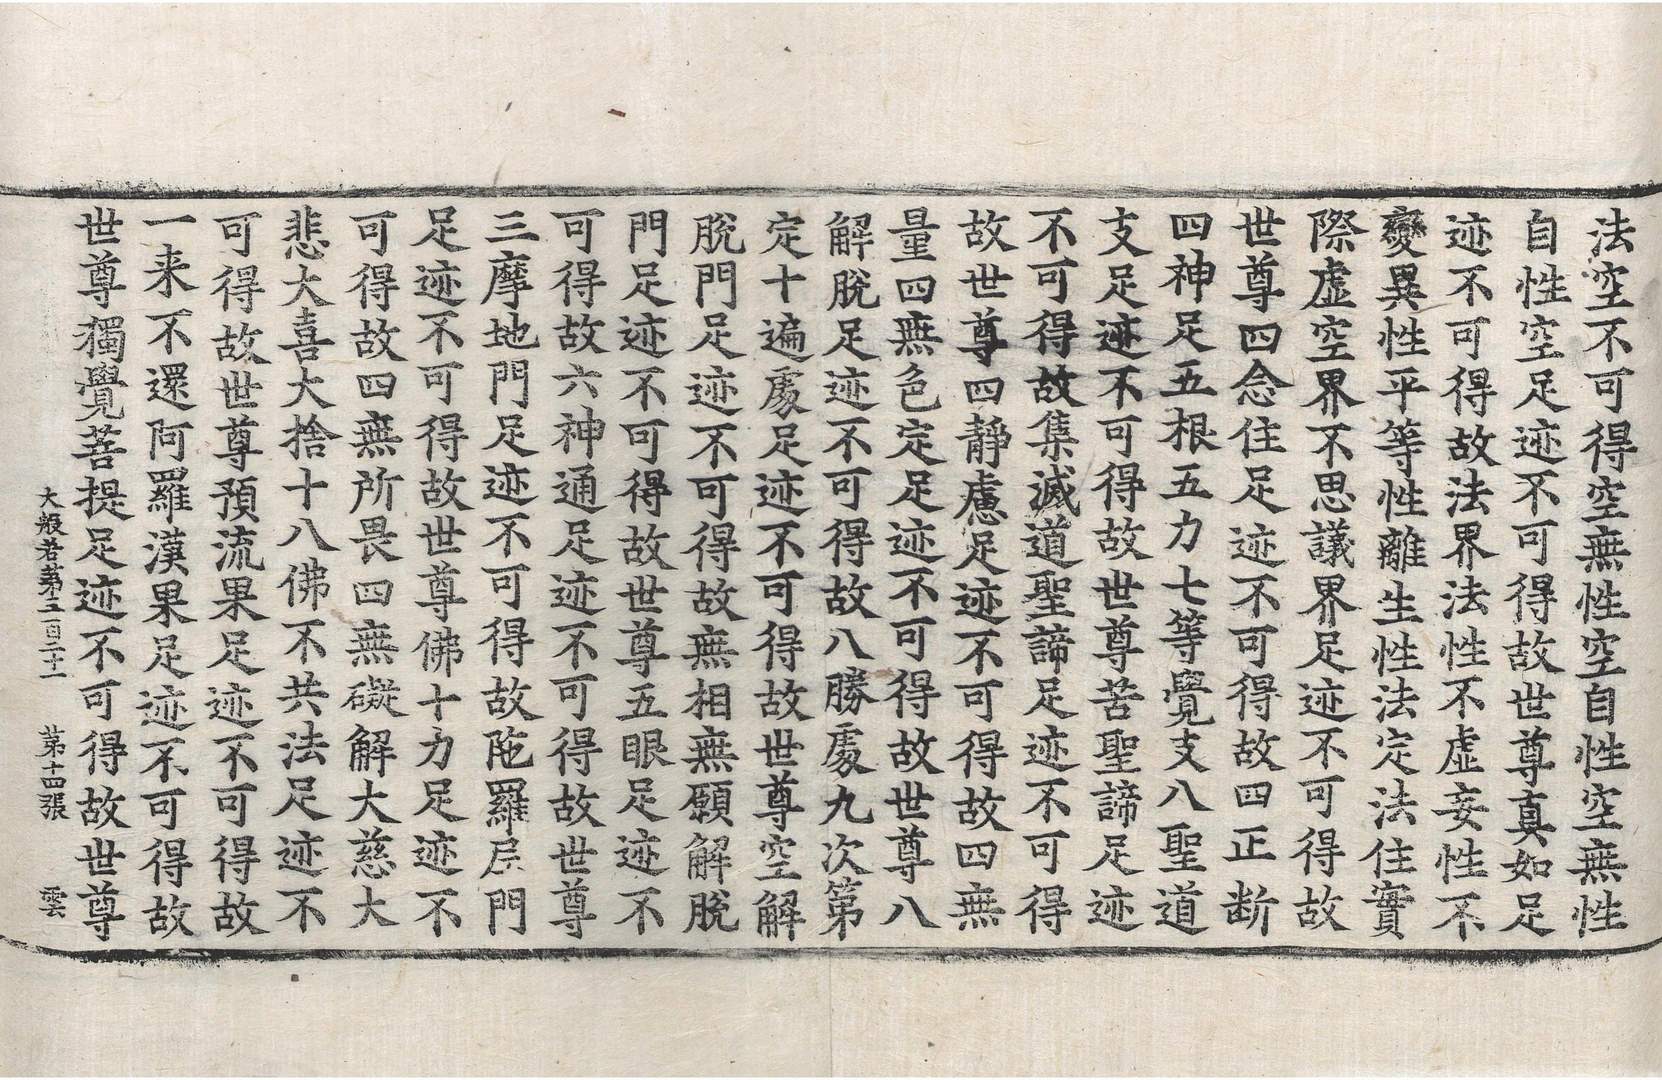 法空不可得空無性空自性空無性
自性空足迹不可得故世尊真如足
迹不可得故法界法性不虛妄性不
變異性平等性離生性法定法住實
際虛空界不思議界足迹不可得故
世尊四念住足迹不可得故四正断
四神足五根五力七等覺支八聖道
支足迹不可得故世尊苦聖諦足迹
不可得故集滅道聖諦足迹不可得
故世尊四靜慮足迹不可得故四無
量四無色定足迹不可得故世尊八
解脫足迹不可得故八勝處九次第
定十遍處足迹不可得故世尊空解
脫門足迹不可得故無相無願解脫
門足迹不可得故世尊五眼足迹不
可得故六神通足迹不可得故世尊
三摩地門足迹不可得故陁羅尼門
足迹不可得故世尊佛十力足迹不
可得故四無所畏四無礙解大慈大
悲大喜大捨十八佛不共法足迹不
可得故世尊預流果足迹不可得故
一来不還阿羅漢果足迹不可得故
世尊獨覺菩提足迹不可得故世尊
大般若第三百二十一　第十四張　雲